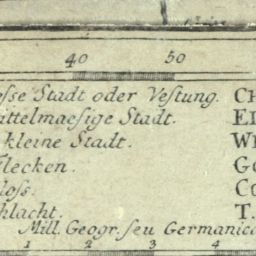 40 50
osse Stadt oder Vestung. CH
ittelmaesige Stadt. EI
kleine Stadt. WI
Flecken. G
loss. Co
hlacht. T.
Mill. Geogr. seu Germanica
1 2 3 4